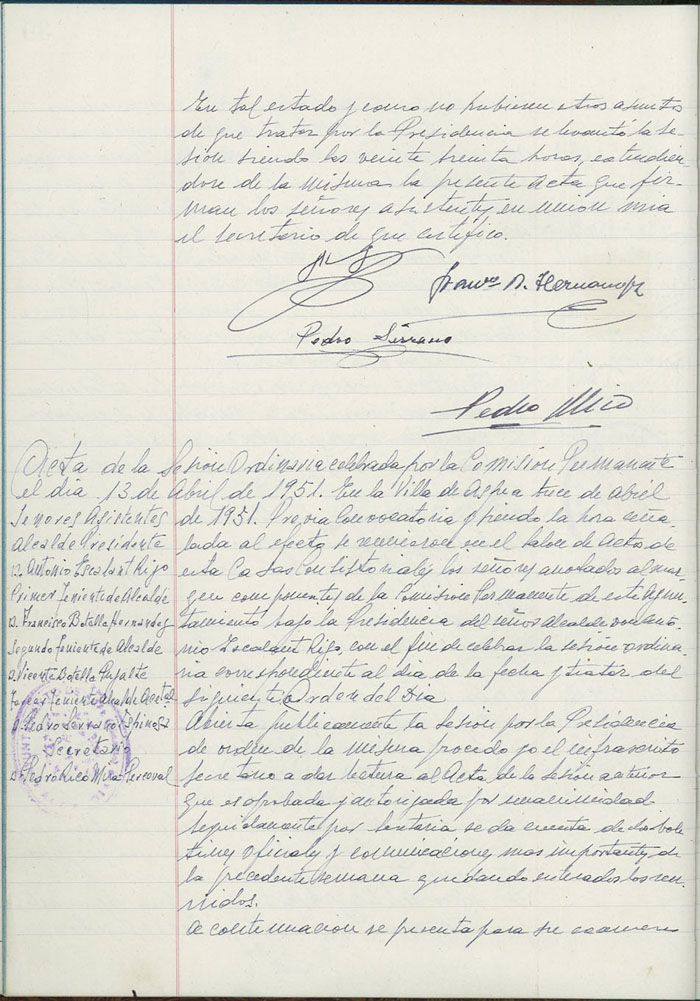 En tal estado y como no hubiesen otros asuntos
de que tratar por la Presidencia se levantó la se-
sion siendo las veinte treinta horas, extendien-
dose de la misma la presente Acta que fir-
man los señores asistentes en union mia
el secretario de que certifico.
Franco B. Hernandez
Pedro Serrano
Pedro Mico
Acta de la Sesión Ordinaria celebrada por la Comisión Permanente
el dia 13 de Abril de 1951. En la Villa de Aspe a trece de abril
Senores Asistentes
Alcalde Presidente
D. Antonio Escalant Rigo
Primer Teniente de Alcalde
D. Francisco Botella Hernandez
Segundo Teniente de Alcalde
D. Vicente Botella
Tercer Teniente Alcalde Acctal
D. Pedro Serrano Espinosa
Secretario
D. Pedro Rico Mira Perceval
de 1951. Previa convocatoria y siendo la hora seña-
lada al efecto se reunieron en el Salon de Actos de
esta Casas Consistoriales los señores anotados al mar-
gen componentes de la Comision Permanente de este Ayun-
tamiento bajo la Presidencia del señor Alcalde don Anto-
nio Escalant Rigo, con el fin de celebrar la sesión ordina-
ria correspondiente al dia de la fecha y tratar del
siguiente Orden del Dia
Abierta publicamente la sesión por la Presidencia
de orden de la misma procedo yo el infrascrito
secretario a dar lectura al Acta de la sesión anterior
que es aprobada y autorizada por unanimidad
seguidamente por se da cuenta de los bole
tines oficiales y comunicaciones mas importantes de
la precedente semana quedando enterados los reu-
nidos.
A continuacion se presenta para su examen